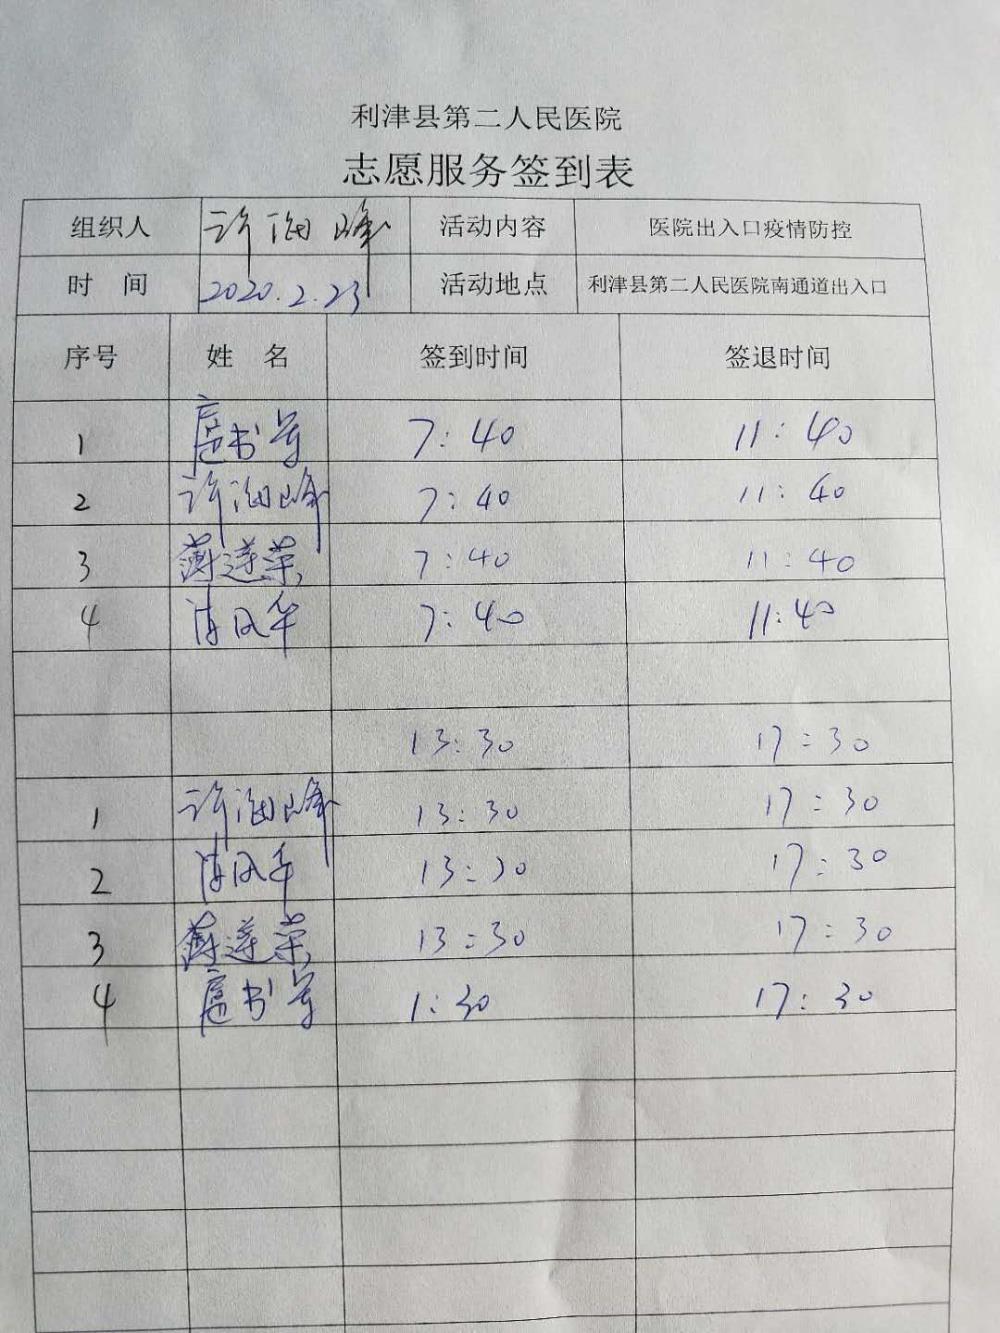 利津县第二人民医院
志愿服务签到表
组织人 许海峰 活动内容 医院出入口疫情防控
时 间 2020.2.23 活动地点 利津县第二人民医院南通道出入口
序号 姓 名 签到时间 签退时间
1 扈书芳 7:40 11:40
2 许海峰 7:40 11:40
3 薄莲荣 7:40 11:40
4 陈风华 7:40 11:40
13:30 17:30
1 许海峰 13:30 17:30
2 陈风华 13:30 17:30
3 薄莲荣 13:30 17:30
4 扈书芳 1:30 17:30